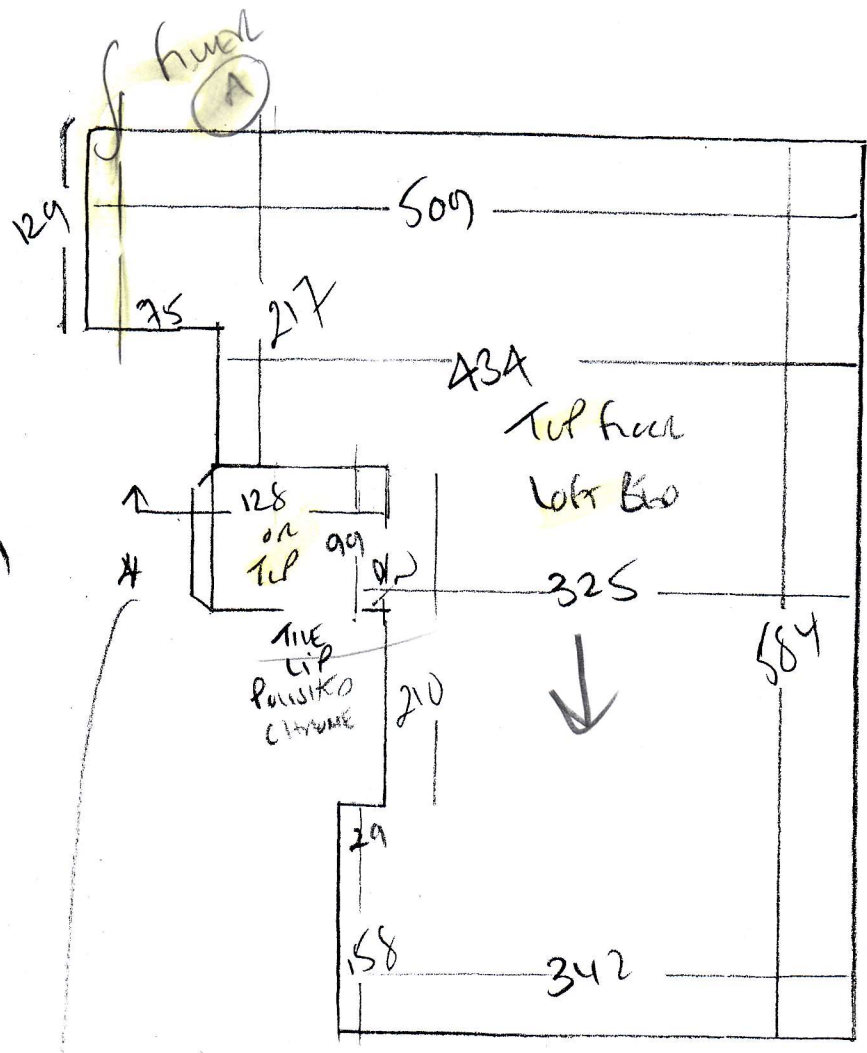 A
509
129
75
217
434
TOP FLOOR
LOFT BED
128
OR
TOP
99
325
TILE
LIP
POLISHED
CHROME
210
584
29
158
342